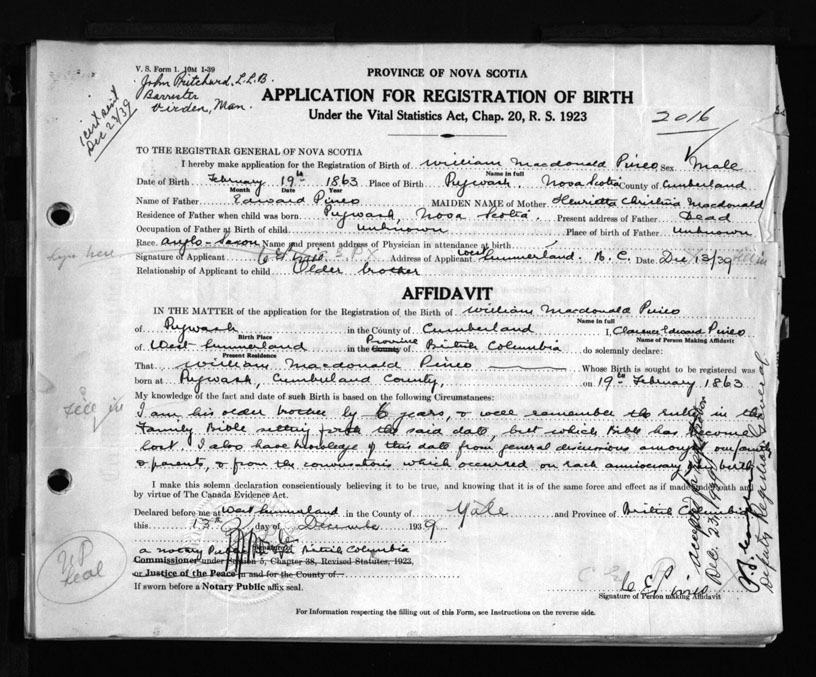 V. S. Form 1. 10M 1-39
John Pritchard, L.L.B.
Barrister
Virden, Man.
Dec 23/39
PROVINCE OF NOVA SCOTIA
APPLICATION FOR REGISTRATION OF BIRTH
Under the Vital Statistics Act, Chap. 20, R. S. 1923
2016
TO THE REGISTRAR GENERAL OF NOVA SCOTIA
I hereby make application for the Registration of Birth of William Macdonald Pineo Sex Male
Name in full
Date of Birth February 19th 1863 Place of Birth Pugwash, Nova Scotia County of Cumberland
Month Day Year
Name of Father Edward Pineo MAIDEN NAME of Mother Henrietta Christina Macdonald
Residence of Father when child was born Pugwash, Nova Scotia. Present address of Father Dead
Occupation of Father at Birth of child Unknown Place of birth of Father Unknown
Race. Anglo-Saxon Name and present address of Physician in attendance at birth
Sign here
Signature of Applicant C E Pineo Address of Applicant West Summerland. B. C. Date Dec 13/39 Fill in
Relationship of Applicant to child Older brother
AFFIDAVIT
IN THE MATTER of the application for the Registration of the Birth of William Macdonald Pineo
Name in full
of Pugwash in the County of Cumberland I, Clarence Edward Pineo
Birth Place Name of Person Making Affidavit
of West Summerland in the County Province of British Columbia do solemnly declare:
Present Residence
That William Macdonald Pineo Whose Birth is sought to be registered was
born at Pugwash, Cumberland County, on 19th February 1863
My knowledge of the fact and date of such Birth is based on the following Circumstances:
Fill in
I am his older brother by 6 years, & well remember the entry in the
Family Bible setting forth the said date, but which Bible has become
lost. I also have knowledge of this date from general discussions among our family
& parents, & from the conversations which occurred on each anniversary of his birth
I make this solemn declaration conscientiously believing it to be true, and knowing that it is of the same force and effect as if made under oath and
by virtue of The Canada Evidence Act.
Declared before me at West Summerland in the County of Yale and Province of British Columbia
this 13th day of December 1939
a notary Public British Columbia
Commissioner under Section 5, Chapter 38, Revised Statutes, 1923,
or Justice of the Peace in and for the County of
If sworn before a Notary Public affix seal.
N P
Seal
C E Pineo
Signature of Person making Affidavit
accepted for registration
Dec. 23, 1939
Deputy Registrar General
For Information respecting the filling out of this Form, see Instructions on the reverse side.